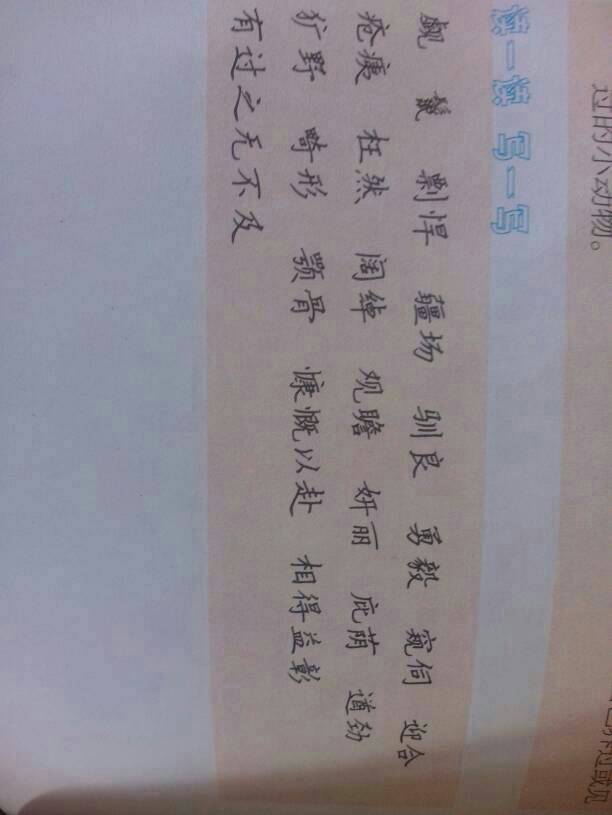 过的小动物。
读一读 写一写
觑 鬣 剽悍 疆场 驯良 勇毅 窥伺 迎合
疮痍 枉然 阔绰 观瞻 妍丽 庇荫 遒劲
犷野 畸形 颚骨 慷慨以赴 相得益彰
有过之无不及